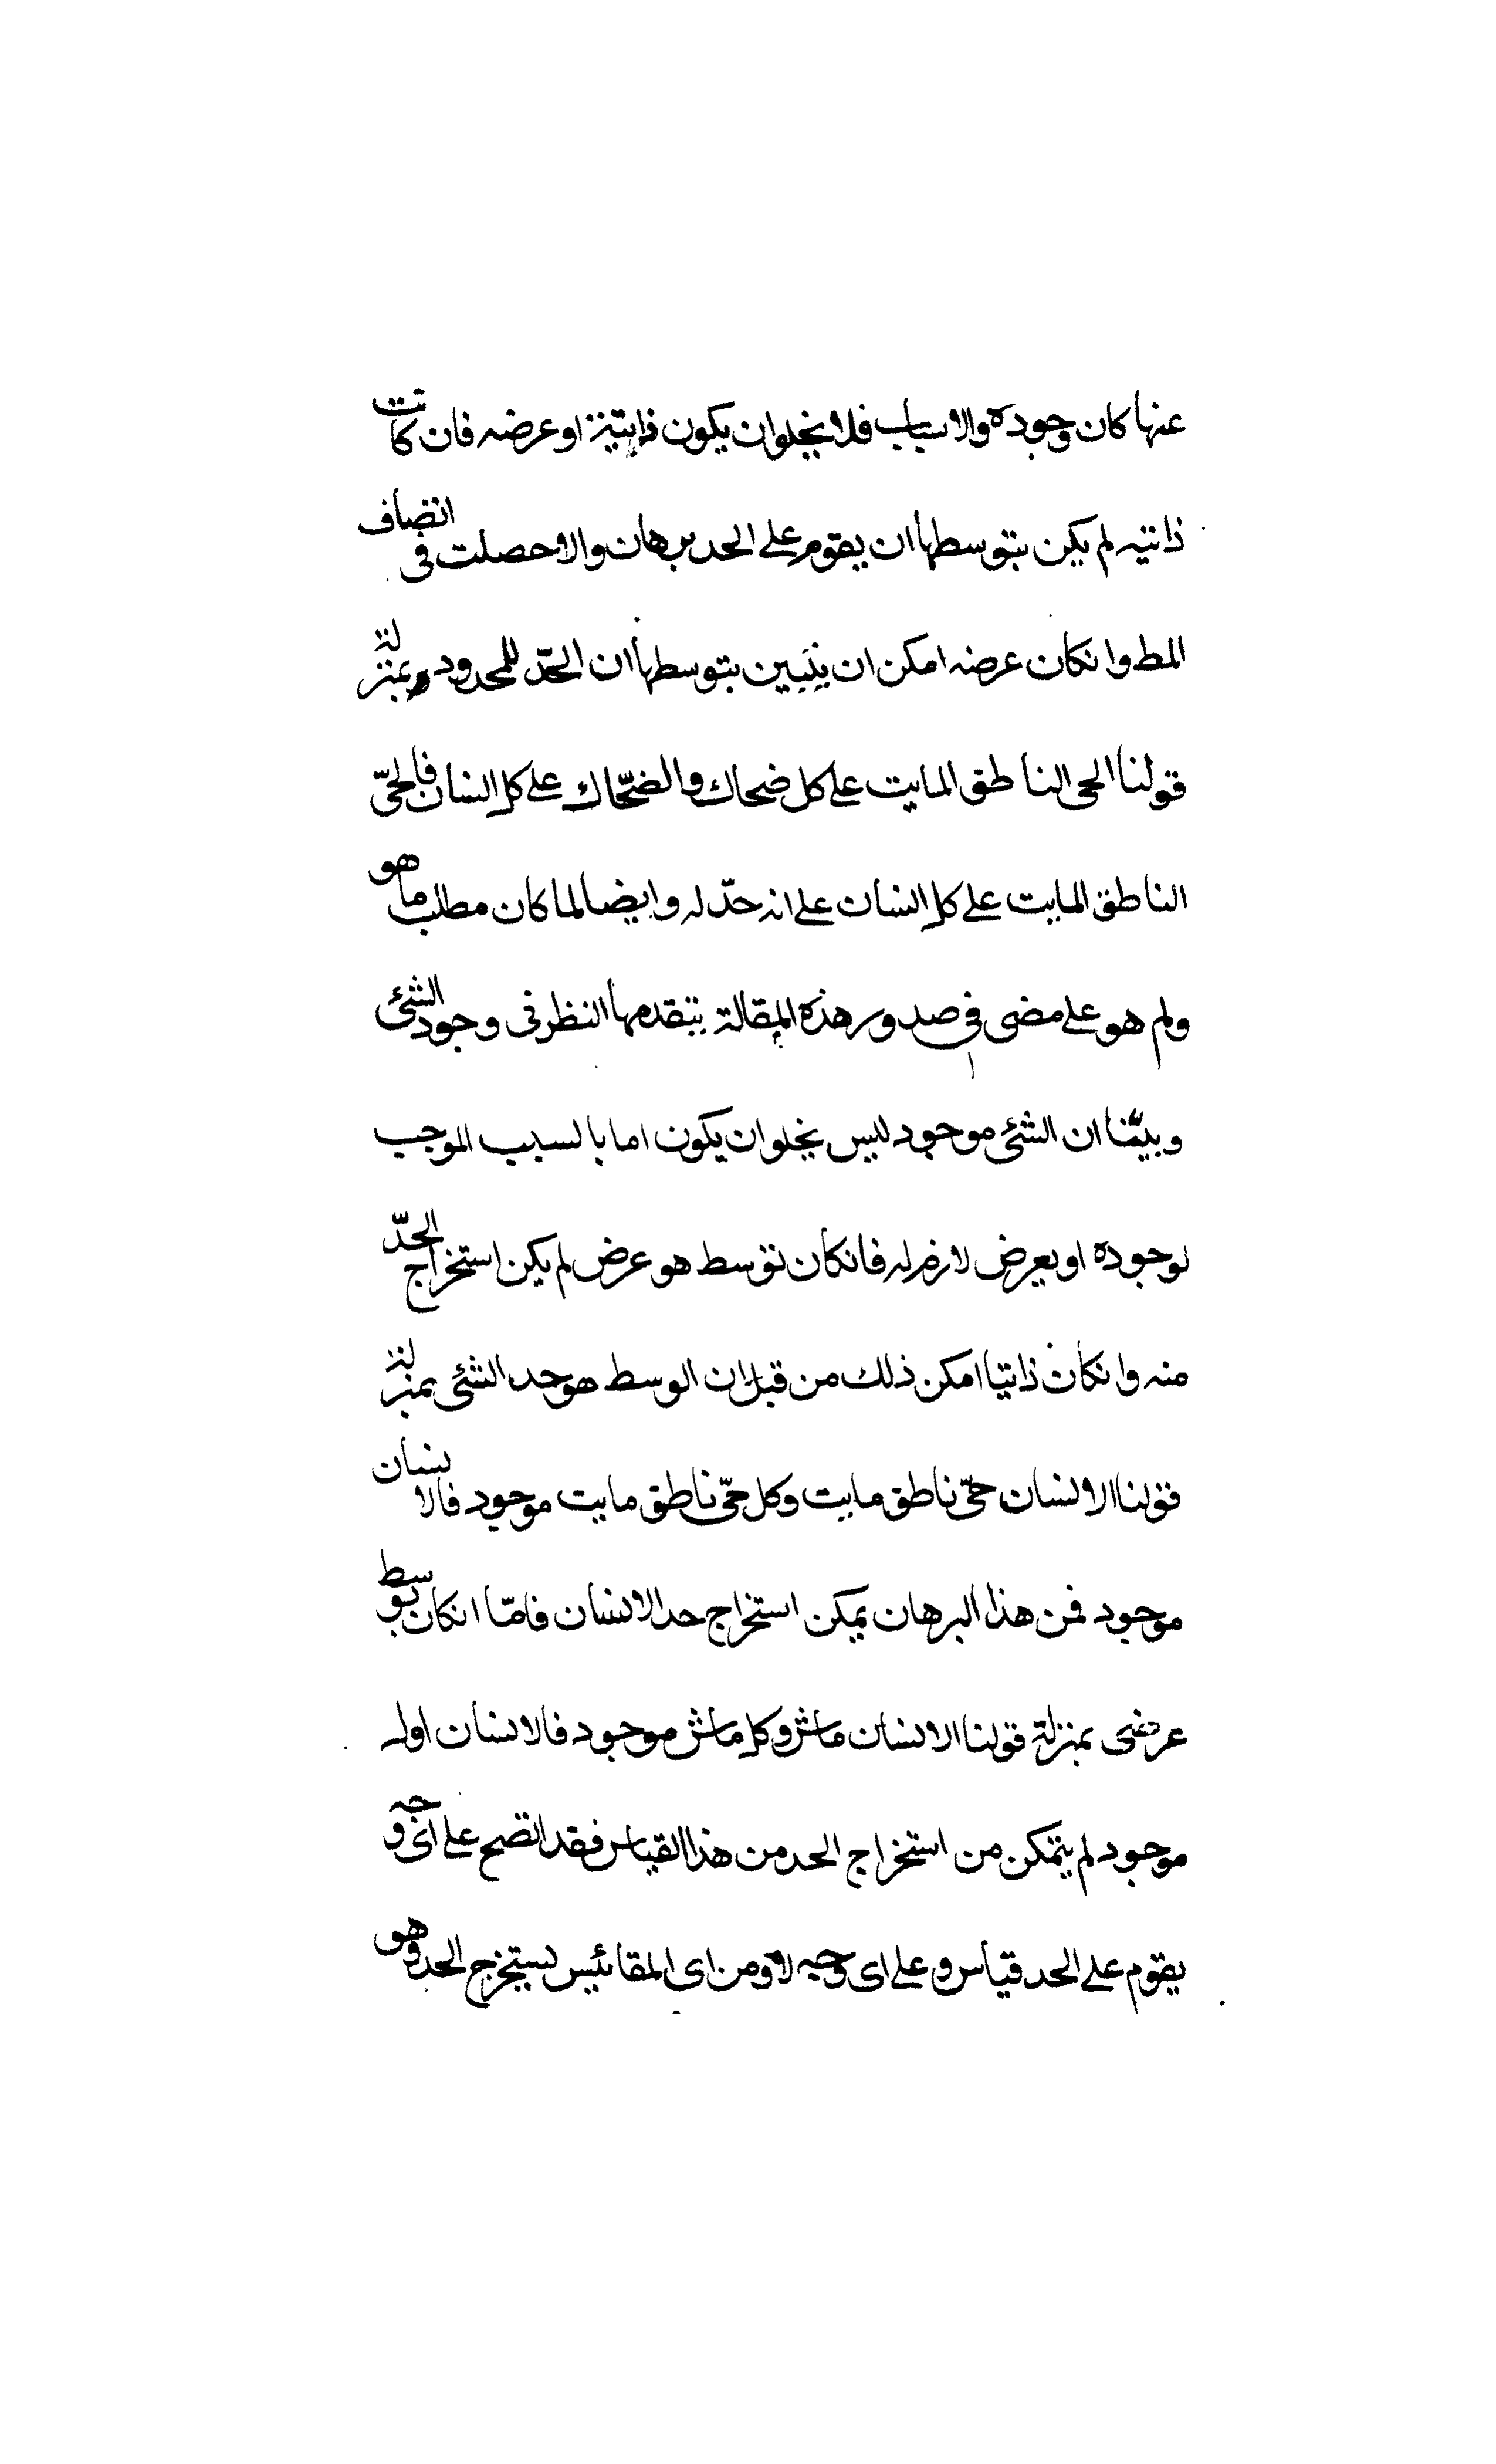 عنها كان وجوده والاسباب فلا يخلوان يكون ذاتية او عرضه فان كانت
ذاتيه لم يكن بتوسطها ان يقوم على الحد برهان والا حصلت فى انضاف
المط وانكان عرضه امكن ان يتبين بتوسطها ان الحدّ للمحدود بمنزلة
قولنا الحى الناطق المايت على كل ضحاك والضحّاك على كل انسان فالحىّ
الناطق المايت على كل انسان على انه حدّ له وايضا لما كان مطلب ما هو
ولم هو على مضى فى صدور هذه المقالة يتقدمها النظر فى وجود الشئى
وبيّنا ان الشئى موجود ليس يخلوان يكون اما بالسبب الموجب
لوجوده او بعرض لازم له فانكان توسط هو عرض لم يكن استخراج الحدّ
منه وانكان ذاتيا امكن ذلك من قبل ان الوسط هو حد الشئى بمنزلة
قولنا الانسان حىّ ناطق مايت وكل حىّ ناطق مايت موجود فالانسان
موجود فمن هذا البرهان يمكن استخراج حد الانسان فامّا انكان بتوسط
عرضى بمنزلة قولنا الانسان ماش وكل ماش موجود فالانسان اوله
موجود لم يتمكن من استخراج الحد من هذا القياس فقد اتضح على اى وجه
يقوم على الحد قياس وعلى اى وجه لا ومن اى المقائيس يستخرج الحد وهو